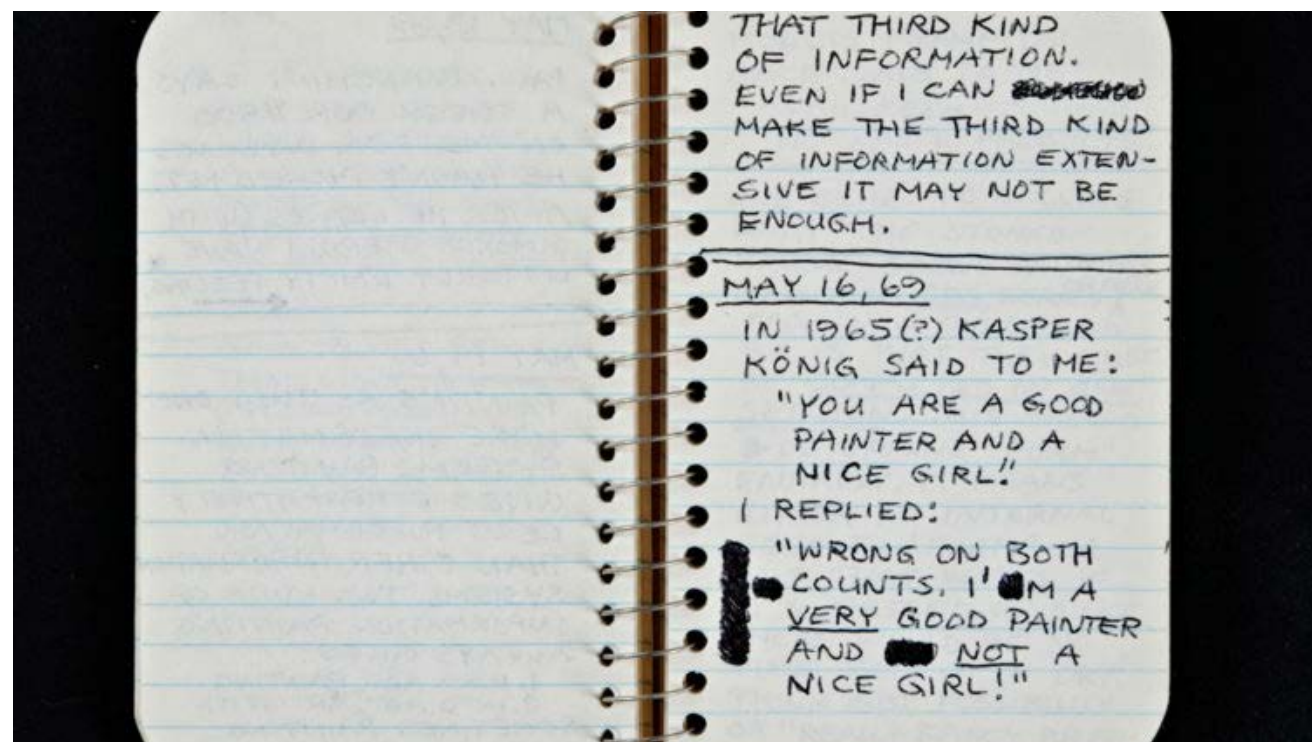 THAT THIRD KIND
OF INFORMATION.
EVEN IF I CAN
MAKE THE THIRD KIND
OF INFORMATION EXTEN-
SIVE IT MAY NOT BE
ENOUGH.
MAY 16, 69
IN 1965(?) KASPER
KÖNIG SAID TO ME:
"YOU ARE A GOOD
PAINTER AND A
NICE GIRL!"
I REPLIED:
"WRONG ON BOTH
COUNTS. I'M A
VERY GOOD PAINTER
AND NOT A
NICE GIRL!"